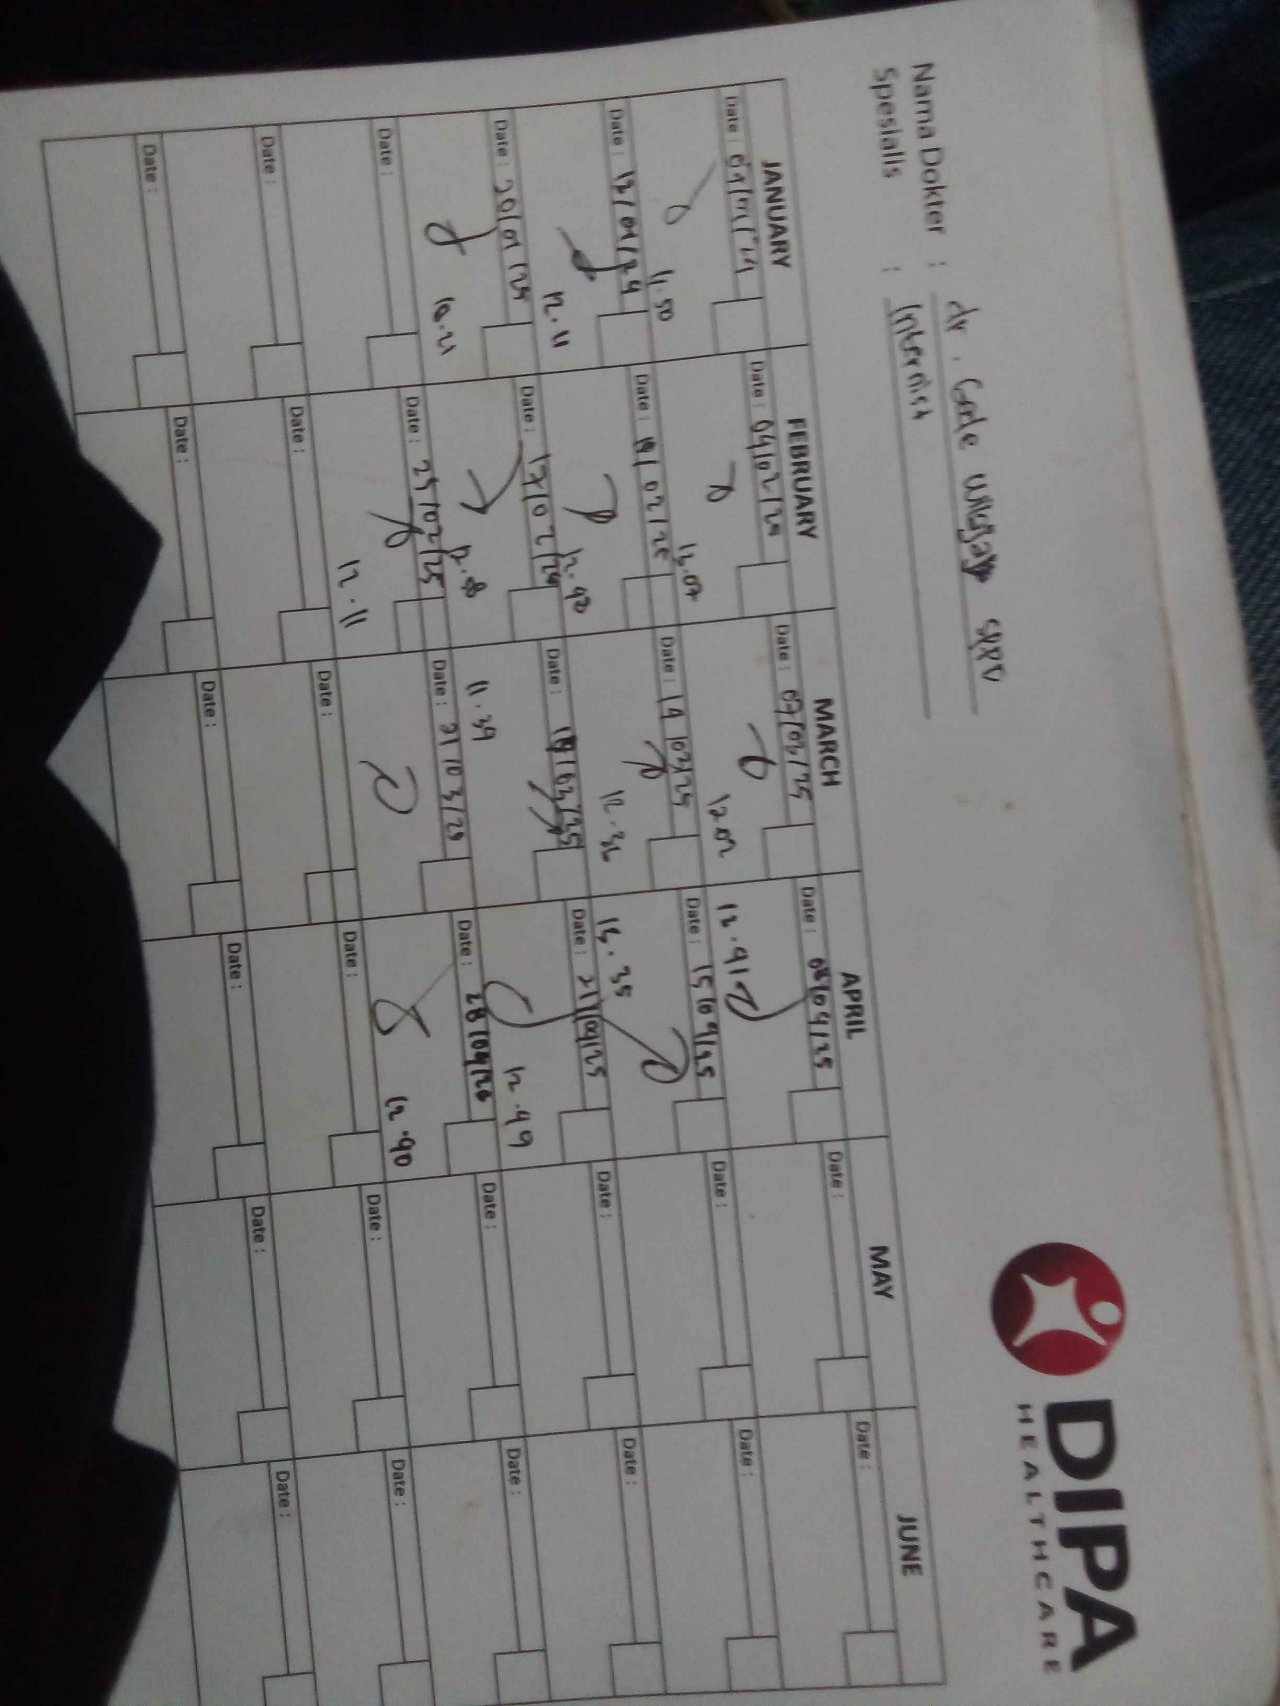 DIPA
HEALTHCARE
Nama Dokter : dr. Gede
Spesialis : Internist
JANUARY FEBRUARY MARCH APRIL MAY JUNE
Date : Date : 04/02/25 Date : 07/03/25 Date : 08/04/25 Date : Date :
11.50 13.07 12.02 12.41
Date : 13/01/24 Date : Date : 14/03/25 Date : 15/04/25 Date : Date :
12.11 12.40 12.36 13.35
Date : 20/01/25 Date : 17/02/25 Date : Date : 21/04/25 Date : Date :
10.21 11.39 12.49
Date : Date : 25/02/25 Date : 21/03/25 Date : Date : Date :
12.11 12.40
Date : Date : Date : Date : Date : Date :
Date : Date : Date : Date : Date : Date :